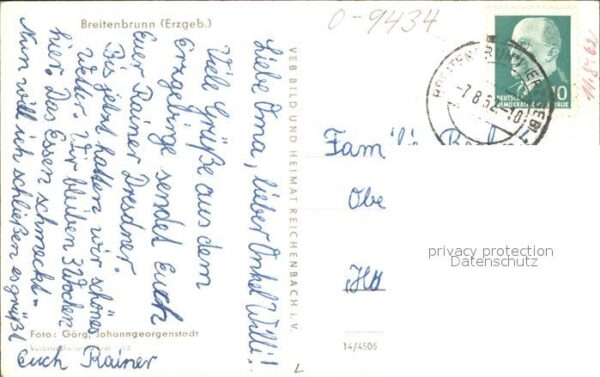 Breitenbrunn (Erzgeb.)
Liebe Oma, lieber Onkel Willi!
Viele Grüße aus dem
Erzgebirge sendet Euch
Euer Rainer Dresdner.
Bis jetzt hatten wir schönes
Wetter. Wir bleiben 3 Wochen
hier. Das Essen schmeckt.
Nun will ich schließen es grüßt
Euch Rainer
Foto: Görg, Johanngeorgenstadt
VEB BILD UND HEIMAT REICHENBACH I. V.
14/4506
0-9434
-7.8.62.-10
10
DEUTSCHE
DEMOKRATISCHE REPUBLIK
Obe
privacy protection
Datenschutz